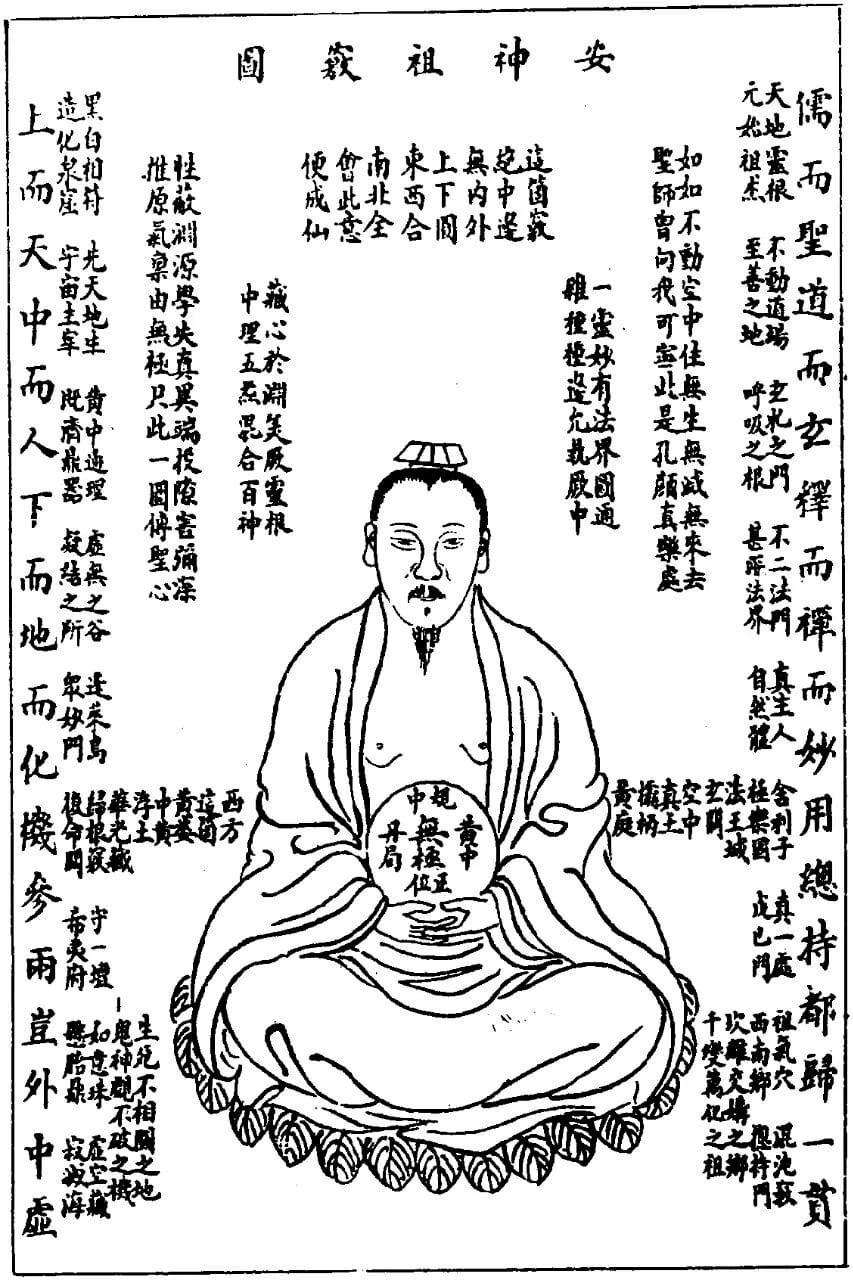 安神祖竅圖
儒而聖道而玄釋而禪而妙用總持都歸一貫
天地靈根 不動道場 玄牝之門 不二法門 真主人
元始祖炁 至善之地 呼吸之根 甚深法界 自然體
舍利子 真一處 祖氣穴 混沌竅
極樂國 戊己門 西南鄉 總持門
法王城 坎離交媾之鄉
玄關 千變萬化之祖
空中
真土
欛柄
黃庭
如如不動空中住無生無滅無來去
聖師曾向我可寧此是孔顏真樂處
一靈妙有法界圓通
離種種邊允執厥中
這箇竅
絕中邊
無內外
上下圓
東西合
南北全
會此意
便成仙
藏心於淵美厥靈根
中理五炁混合百神
性蔽淵源學失真異端投隙害彌深
推原氣稟由無極只此一圖傳聖心
規中
黃中
無極
正位
丹局
西方
這箇
黃婆
中黃
淨土
華光藏
歸根竅
復命關
黑白相符 先天地生 黃中通理 虛無之谷 蓬萊島
造化泉窟 宇宙主宰 既濟鼎器 凝結之所 眾妙門
守一壇
希夷府
生死不相關之地
鬼神覷不破之機
如意珠 虛空藏
懸胎鼎 寂滅海
上而天中而人下而地而化機參兩豈外中虛